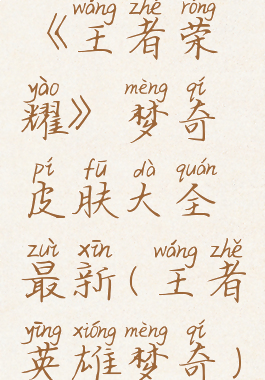 wáng zhě róng
《王者荣
yào mèng qí
耀》 梦奇
pí fū dà quán
皮肤大全
zuì xīn wáng zhě
最新(王者
yīng xióng mèng qí
英雄梦奇)